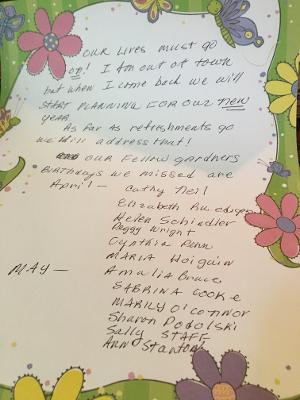 OUR LIVES must go
on! I AM out of town
but when I come back we will
START PLANNING FOR OUR new
year
As far as refreshments go
we will address that!
OUR Fellow gardners
Birthdays we missed are
April - Cathy Neil
Elizabeth
Helen Schindler
Peggy Wright
Cynthia Penn
MARIA Hoiguin
MAY - Amalia Bruce
SABRINA COOKE
MARILY O'CONNOR
Sharon Podolski
Sally STAFF
ANN Stanton